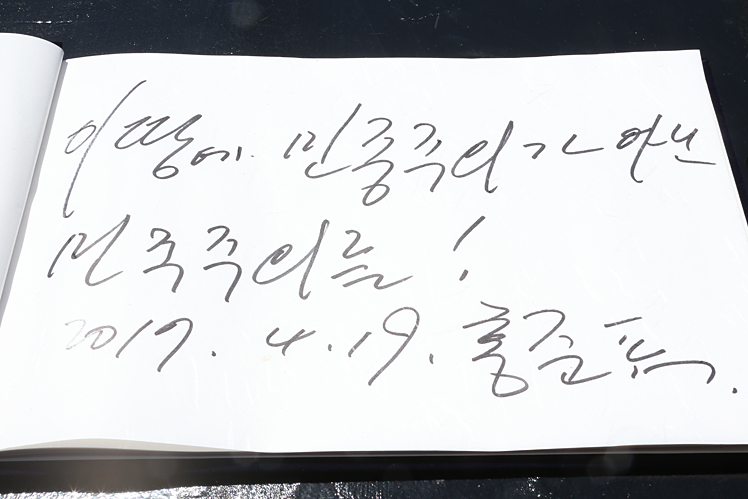 이 땅에 민중주의가 아닌
민주주의를!
2017. 4. 19. 홍준표.